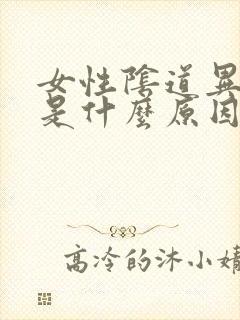 女性陰道異
是什麼原因
高冷的沐小婧